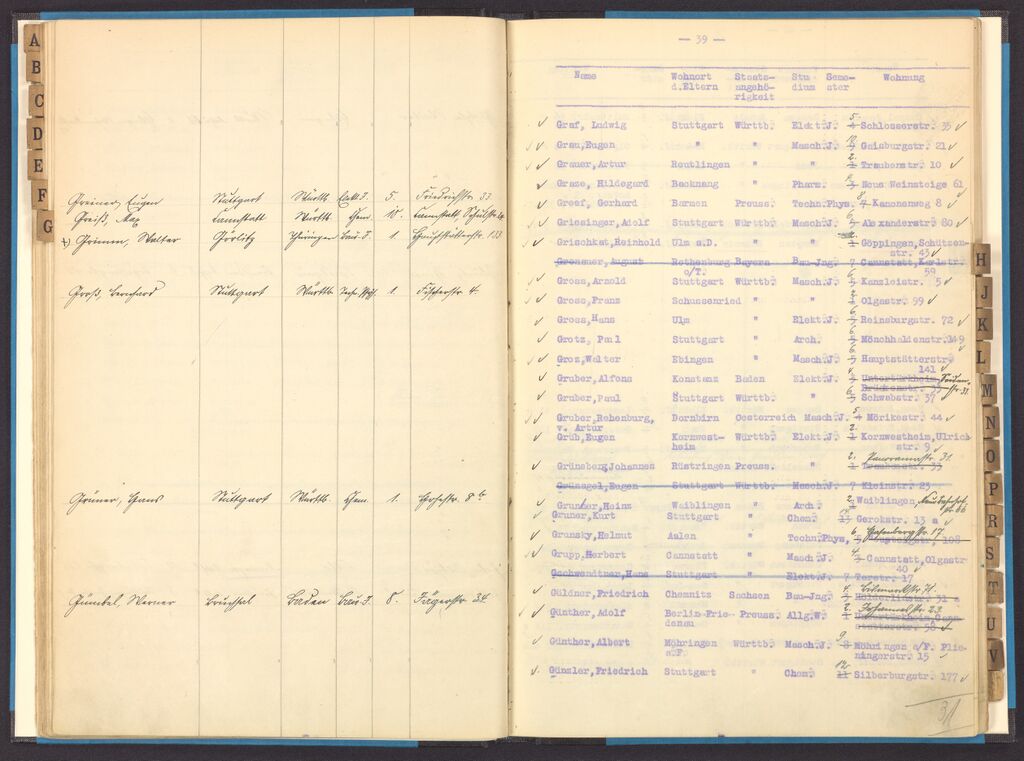 A
B
C
D
E
F
G
Greiner, Eugen Stuttgart Württb. Elekt.J. 5. Friedrichstr. 33
Greiß, Max Cannstatt Württb. Chem. 10. Cannstatt,
Grimm, Walter Görlitz Thüringen Bau-I. 1.
Groß, Bernhard Stuttgart Württb. 1. Fischerstr. 4.
Grüner, Hans Stuttgart Württb. Chem. 1. 8 b
Gümbel, Werner Bruchsal Baden Bau-I. 8. Jägerstr. 34
— 39 —
Name Wohnort Staats- Stu Seme- Wohnung
d.Eltern angehö- dium ster
rigkeit
Graf, Ludwig Stuttgart Württb. Elekt.J. 5. 4 Schlosserstr. 35
Grau,Eugen " " Masch.J. 10. Gaisburgstr. 21
Grauer,Artur Reutlingen " " 2. 1 Traubenstr. 10
Graze, Hildegard Backnang " Pharm. Neue Weinsteige 61
Greef, Gerhard Barmen Preuss. Techn.Phys. 4 Kanonenweg 8
Griesinger, Adolf Stuttgart Württb. Masch.J. Alexanderstr. 80
Grischkat,Reinhold Ulm a.D. " " 1 Göppingen,Schützen-
str. 43
Gronauer,August Rothenburg Bayern Bau-Jng. 7 Cannstatt,Karlstr.
o/T. 59
Gross, Arnold Stuttgart Württb. Masch.J. 6. 5 Kanzleistr. 5
Gross, Franz Schussenried " " Olgastr. 99
Gross,Hans Ulm " Elekt.J. 6. 5 Reinsburgstr. 72
Grotz, Paul Stuttgart " Arch. 6. 5 Mönchhaldenstr.149
Groz,Walter Ebingen " Masch.J. 6. 5 Hauptstätterstr.
141
Gruber, Alfons Konstanz Baden Elekt.J. Untertürkheim,
Brückenstr. 33
Gruber, Paul Stuttgart Württb. " 6. Schwabstr. 37
Gruber, Rehenburg, Dornbirn Oesterreich Masch.J. 5. 4 Mörikestr. 44
v. Artur
Grub,Eugen Kornwest- Württb. Elekt.J. 2. 1 Kornwestheim,Ulrich
heim str. 9
Grüneberg,Johannes Rüstringen Preuss. " 2. Panoramastr. 31.
1 Traubenstr. 33
Grünagel,Eugen Stuttgart Württb. Masch.J. 7 Kleinstr. 23
Grunder,Heinz Waiblingen " Arch. 2. Waiblingen,
Gruner,Kurt Stuttgart " Chem. 14 13 Gerokstr. 13 a
Gransky,Helmut Aalen " Techn.Phys, 6. 5 108
Grupp,Herbert Cannstatt " Masch.J. 4. 3 Cannstatt,Olgastr
40
Gschwendtner,Hans Stuttgart " Elekt.J. 7 Torstr. 17
Güldner,Friedrich Chemnitz Sachsen Bau-Jng. 4. Bismarckstr. 71.
3 Hölderlinstr. 51 a
Günther, Adolf Berlin-Frie- Preuss. Allg.W. 2. Johannesstr. 23
denau 1 Untertürkheim,Cann-
statterstr. 58
Günther, Albert Möhringen Württb. Masch.J. 9. 8 Möhringen a/F. Plie-
a.F. ningerstr. 15
Günzler,Friedrich Stuttgart " Chem. 12. 11 Silberburgstr. 177
31
H
J
K
L
M
N
O
P
R
S
T
U
V